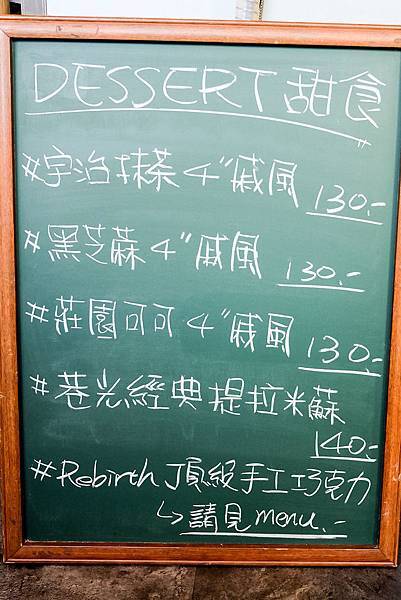 DESSERT 甜食
#宇治抹茶 4"戚風 130.-
#黑芝蔴 4"戚風 130.-
#莊園可可 4"戚風 130.-
#巷光經典提拉米蘇
140.-
#Rebirth 頂級手工巧克力
↳請見menu.-